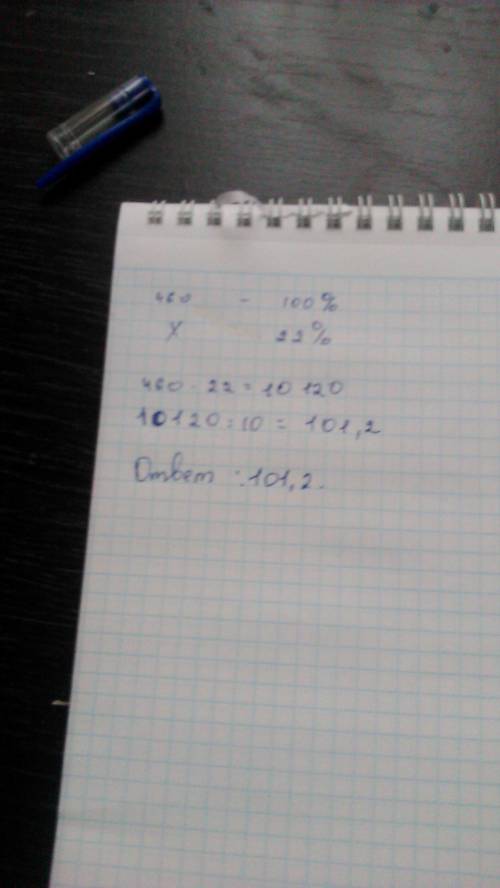 460 - 100%
X 22%
460 · 22 = 10 120
10120 : 10 = 101,2
Ответ : 101,2.